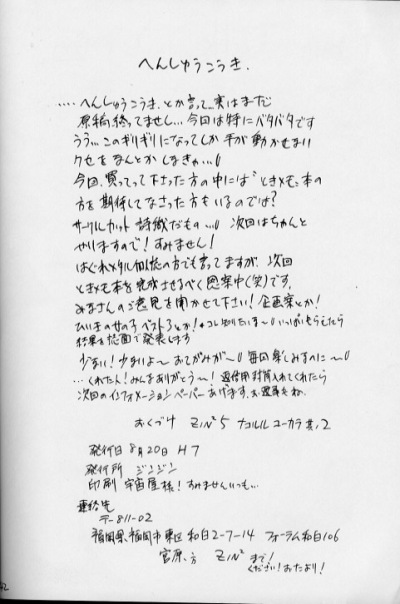 へんしゅうこうき.
....へんしゅうこうき.とか言って…実はまだ
原稿終ってませし…今回は特にバタバタです
うう…このギリギリになってしか手が動かせない
クセをなんとかしなきゃ…
今回、買ってって下さった方の中には"ときメモ本の
方を期待してなさった方もいるのでは?
サークルカット 詐欺だもの…
次回はちゃんと
やりますので! すみません!
はぐれメタル の方でも言ってますが、次回
ときメモ本を完成させるべく思案中(笑)です。
みなさんのご意見を聞かせて下さい! 企画案とか!
ひいきの女の子ベスト3とか! コレ知りたいナー いっぱいもらえたら
結果を誌面で発表します
少ない! 少ないよ〜 おてがみが〜 毎回楽しみなのに〜
…くれた人! みんなありがとう〜! 返信用封筒入れてくれたら
次回のインフォメーションペーパーあげます.
おくづけ ZIN²5 ナコルル ユーカラ 其ノ2
発行日 8月20日 H7
発行所 ジンジン
印刷 宇宙屋様! すみませんいつも…
連絡先
〒811-02
福岡県福岡市東区和白2-7-14 フォーラム和白106
宮原方 ZIN² まで!
ください! おたより!
42